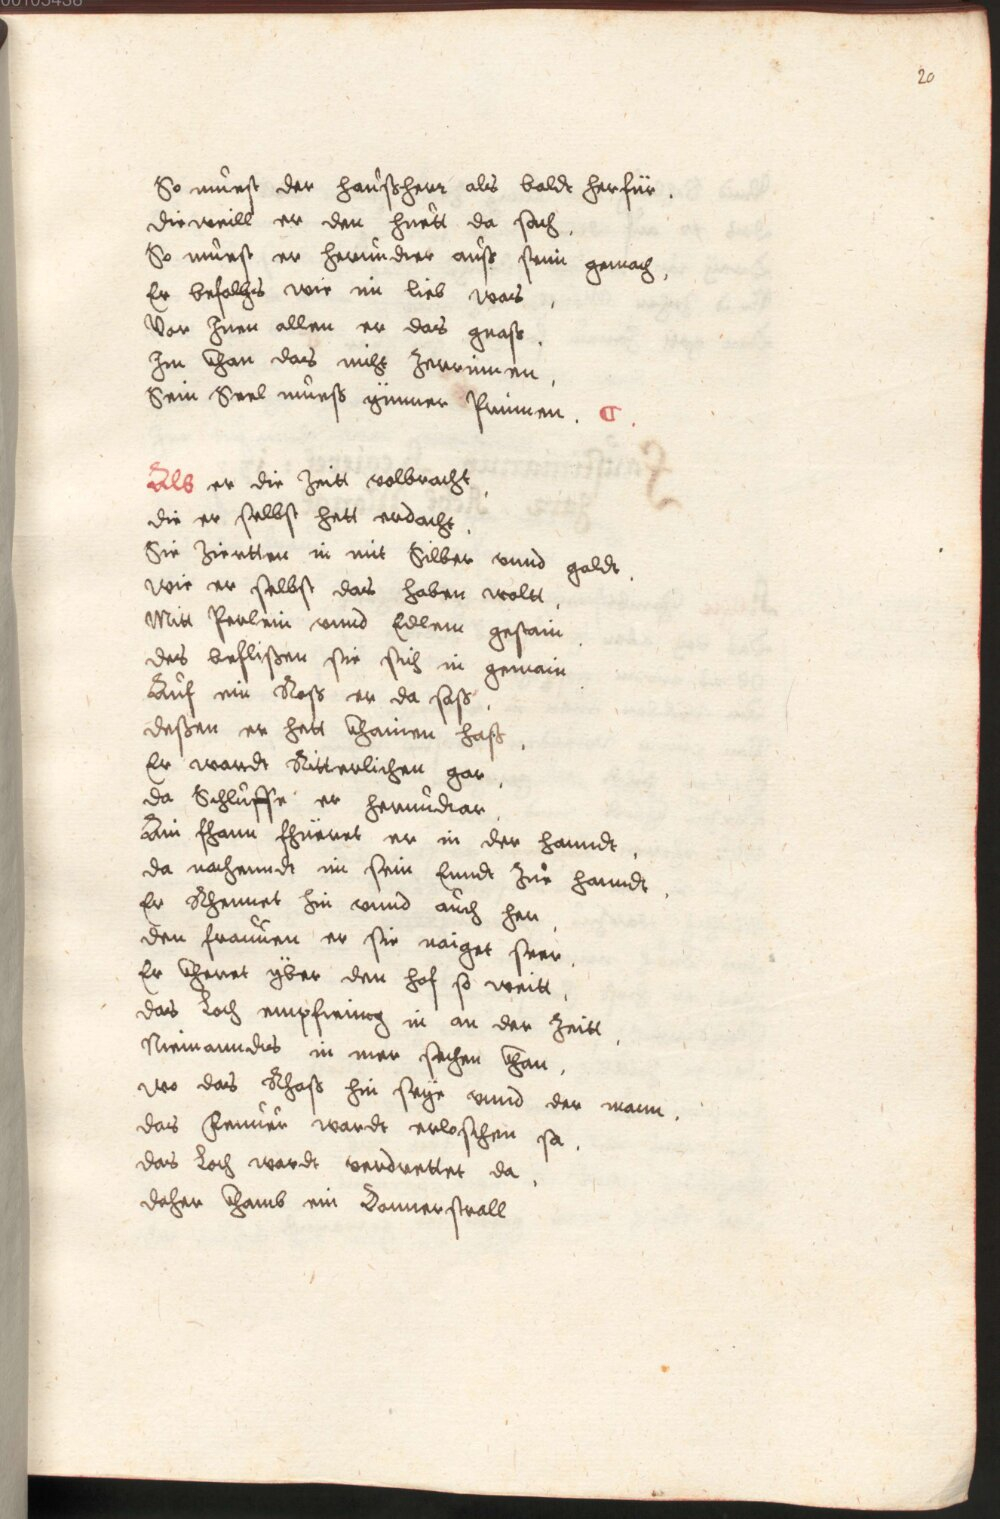 20
So muest der haußherr als baldt herfür.
dieweill er den huett da sach,
So muest er herundter auß seim gemach,
Er befalchs wie im lieb was,
Vor Inen allen er das genaß.
Im khan das nicht Zerrinnen,
Sein Seel mueß ÿmmer Prinnen.
Als er die Zeitt volbracht,
die er selbst hett erdacht,
Sie Ziertten in mit Silber vnnd goldt.
wie er selbst das haben woltt,
Mitt Perlein vnnd Edlem gestain
des beflißen sie sich in gemain
Auf ein Roß er da saß,
deßen er hett khainen haß,
Er wardt Ritterlichen gar,
da Schluffe er herundter,
Ain fhann fhueret er in der hanndt,
da nachenndt im sein Enndt Zue hanndt,
Er Rhennet hin vnnd auch her,
den frauuen er sie naiget seer,
Er kheret yber den hof so weitt,
das Loch empfieing in an der Zeitt,
Niemanndts in mer sechen khan,
wo das Rhoß hin seye vnnd der mann,
das Feuuer wardt erloschen sa,
das Loch wardt verdrettet da,
daher khamb ein Donnerstrall